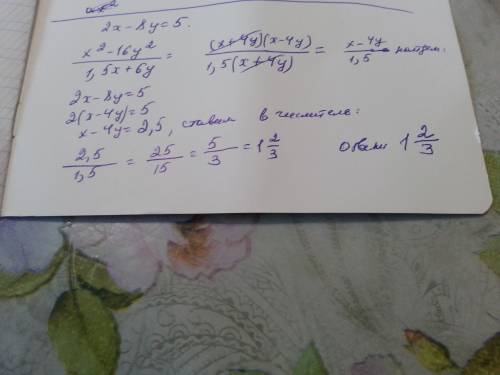 2x-8y=5.
x²-16y² / 1,5x+6y = (x+4y)(x-4y) / 1,5(x+4y) = x-4y / 1,5 найдем:
2x-8y=5
2(x-4y)=5
x-4y=2,5, ставим в числитель:
2,5 / 1,5 = 25 / 15 = 5 / 3 = 1 2/3 Ответ 1 2/3